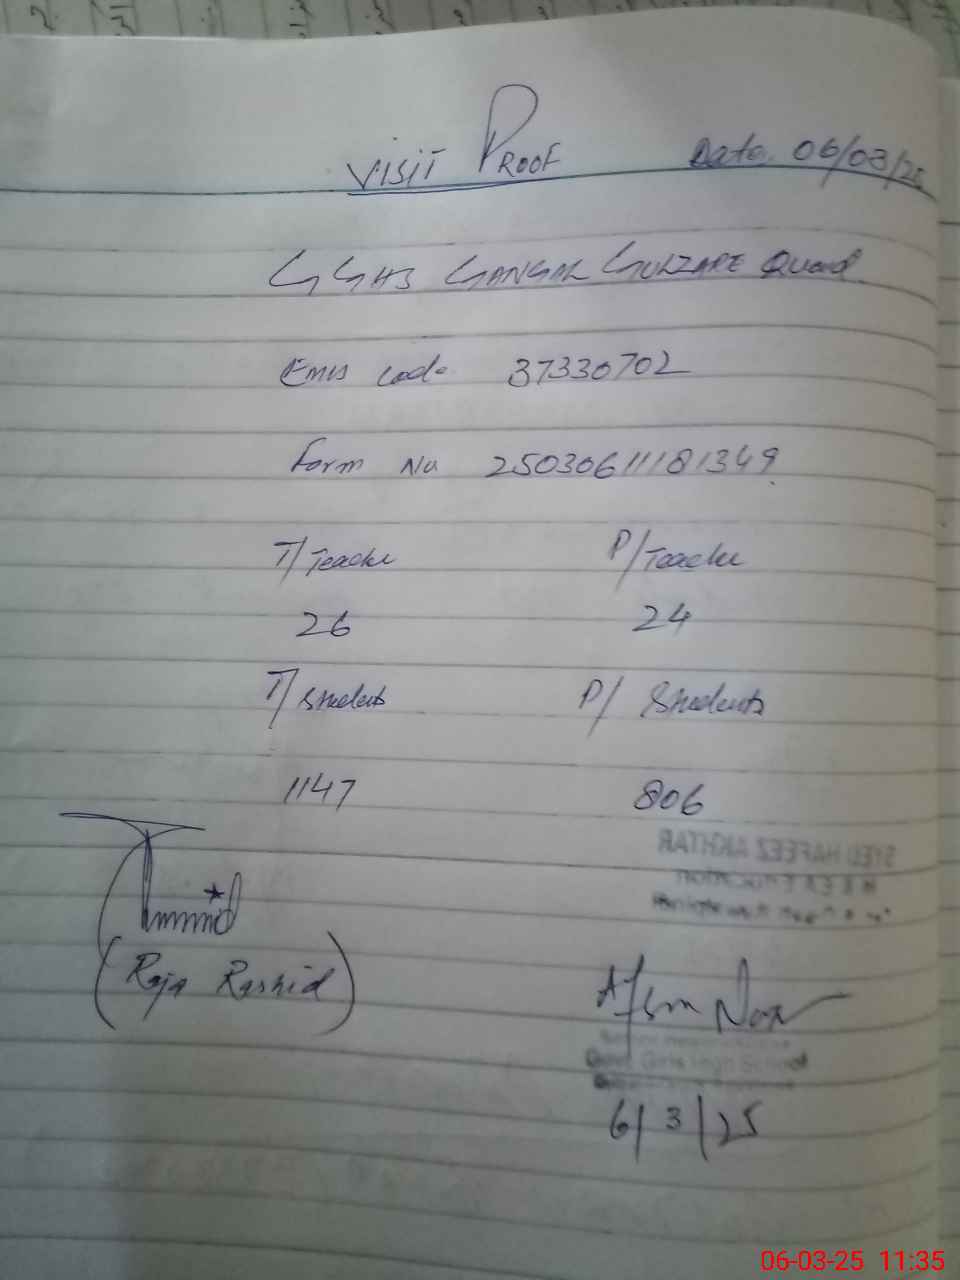 VISIT PROOF Date. 06/03/25
GGHS GANGAL GULZARE Quaid
Emis code 37330702
Form No 2503061118134 9
T/Teacher P/Teacher
26 24
T/Students P/ Students
1147 806
SYED HAFEEZ AKHTAR
(Raja Rashid)
Girls High School
6/3/25
06-03-25 11:35